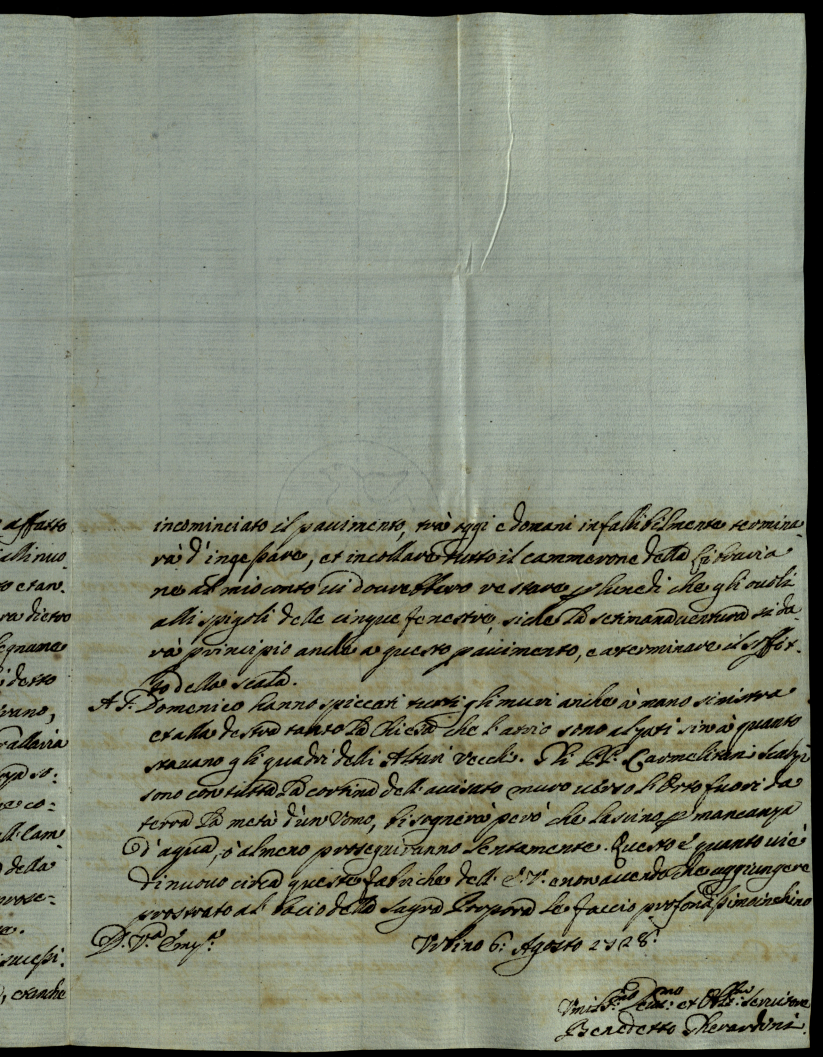 affatto
to etan-
ra dietro
legname
detto
ll: Cam
della
prose-
, et anche
incominciato il pavimento, trà oggi e domani infallibilmente termina-
rà d'ingessare, et incollare tutto il cammerone della Libraria
ne al mio conto vi dovrebbero restare per lunedì che gli ovoli
alli spigoli delle cinque fenestre, siche la setimana ventura si da-
rà principio anche a questo pavimento, e a terminare il soffit-
to della scala.
A S. Domenico hanno spiccati tutti gli muri anche à mano sinistra
et alla destra tanto la Chiesa che l'atrio sono alzati sin à quanto
stavano gli quadri delli Altari vecchi. Gli PP: Carmelitani Scalzi
sono con tutta la cortina dell'avisato muro verso l'Orto fuori da
terra la metà d'un Uomo, bisognerà però che lascino per mancanza
d'aqua, ò almeno proseguiranno lentamente. Questo è quanto vi è
di nuovo circa queste fabriche dell' E: V: e non avendo che aggiungere
prostrato al bacio della Sagra Porpora le faccio profondissimo inchino
D: V:ra Em:za
Urbino 6: Agosto 1728:
Umil:mo Dev:mo et Obl:mo Servitore
Benedetto Gherardini